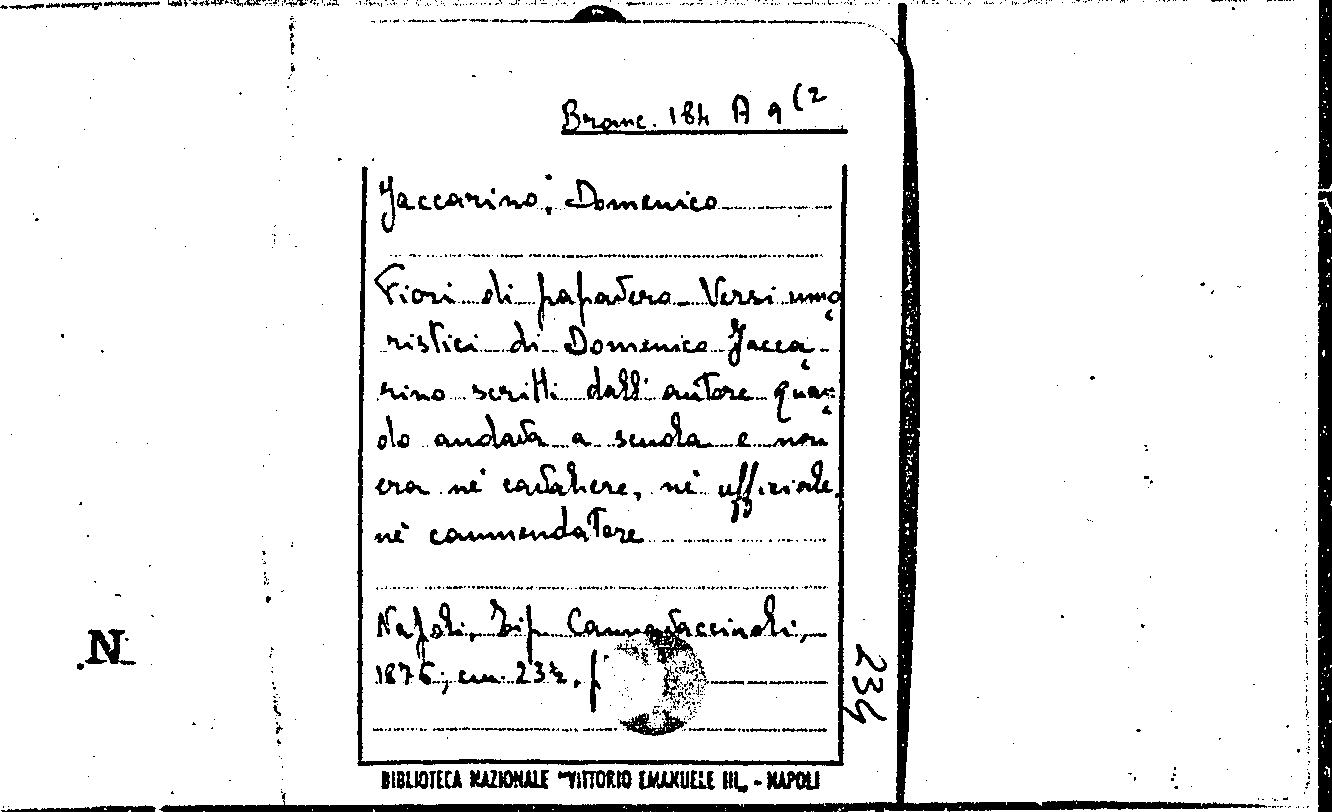 Branc. 184 A 9 (2
Jaccarino, Domenico
Fiori di papavero - Versi umo
ristici di Domenico Jacca-
rino scritti dall'autore quan=
do andava a scuola e non
era nè cavaliere, nè uffiziale,
nè commendatore
Napoli, Tip. Cannavacciuoli,
1876, cm. 23½, p
234
N
BIBLIOTECA NAZIONALE "VITTORIO EMANUELE III„ - NAPOLI